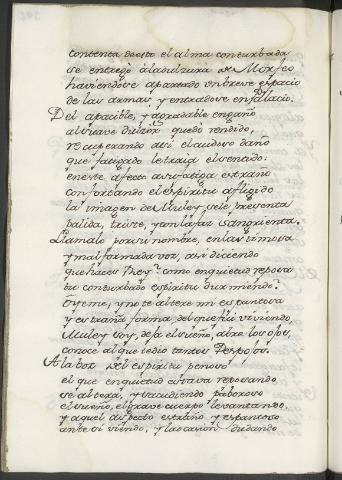 contenta desto el alma conturbada
se entregò a la dulzura de Morfeo
haviendose apartado un breve espacio
de las armas, y entradose en palacio.
Del apacible, y agradable engaño
al suave dulzor quedò rendido,
recuperando asi el cuidoso daño
que fatigado le traia el sentido:
en este afecto a su fatiga estraño
confortando el espiritu afligido
la imagen de Muley, se le presenta
palida, triste, y con la faz sangrienta.
Llamale por su nombre, en la timosa
y mal formada voz, asi diciendo
que haces Rey? como en quietud reposa
tu conturbado espiritu durmiendo?
oyeme, y no te altere mi espantosa
y estraña forma del que fui viviendo,
Muley soy, deja el sueño, abre los ojos,
conoce al que te dio tantos Despojos.
A la voz del espiritu penoso
el que en quietud estava reposando
se altera, y sacudiendo pavoroso
el sueño, el grave cuerpo levantando,
y aquel aspecto estraño y espantoso
ante si viendo, y la ocasion dudando